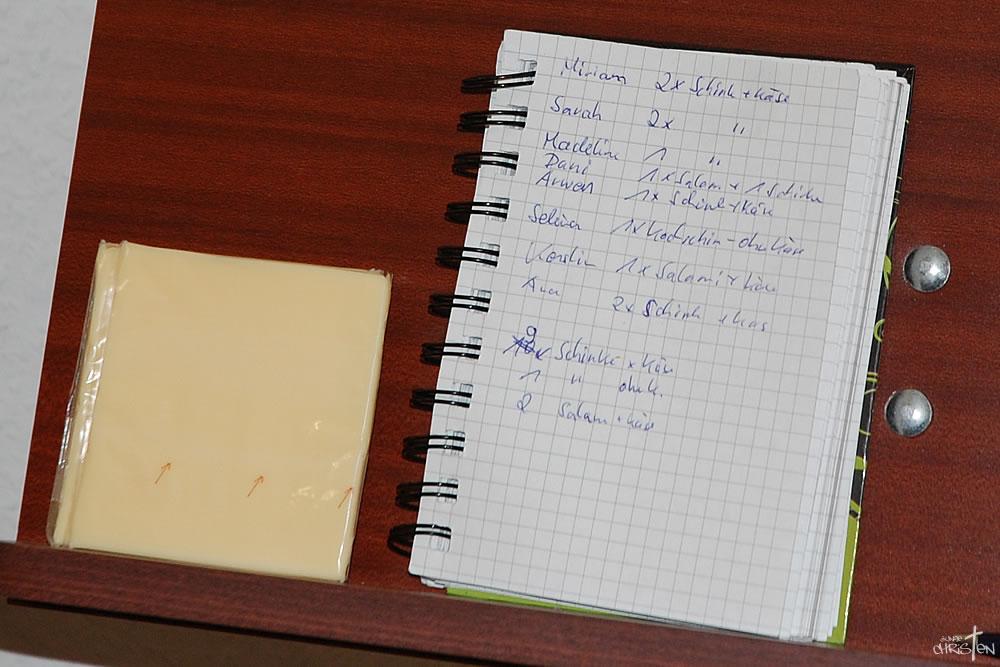 Miriam 2x Schink + Käse
Sarah 2x "
Madeline 1 "
Dani 1x Salam + 1 Schinke
Arwen 1x Schink + Käse
1x Kochschin - ohne Käse
Kerstin 1x Salami + Käse
2x Schink + Kas
9 Schinke + Käse
1 " ohne K.
2 Salam + Käse
CHRISTEN